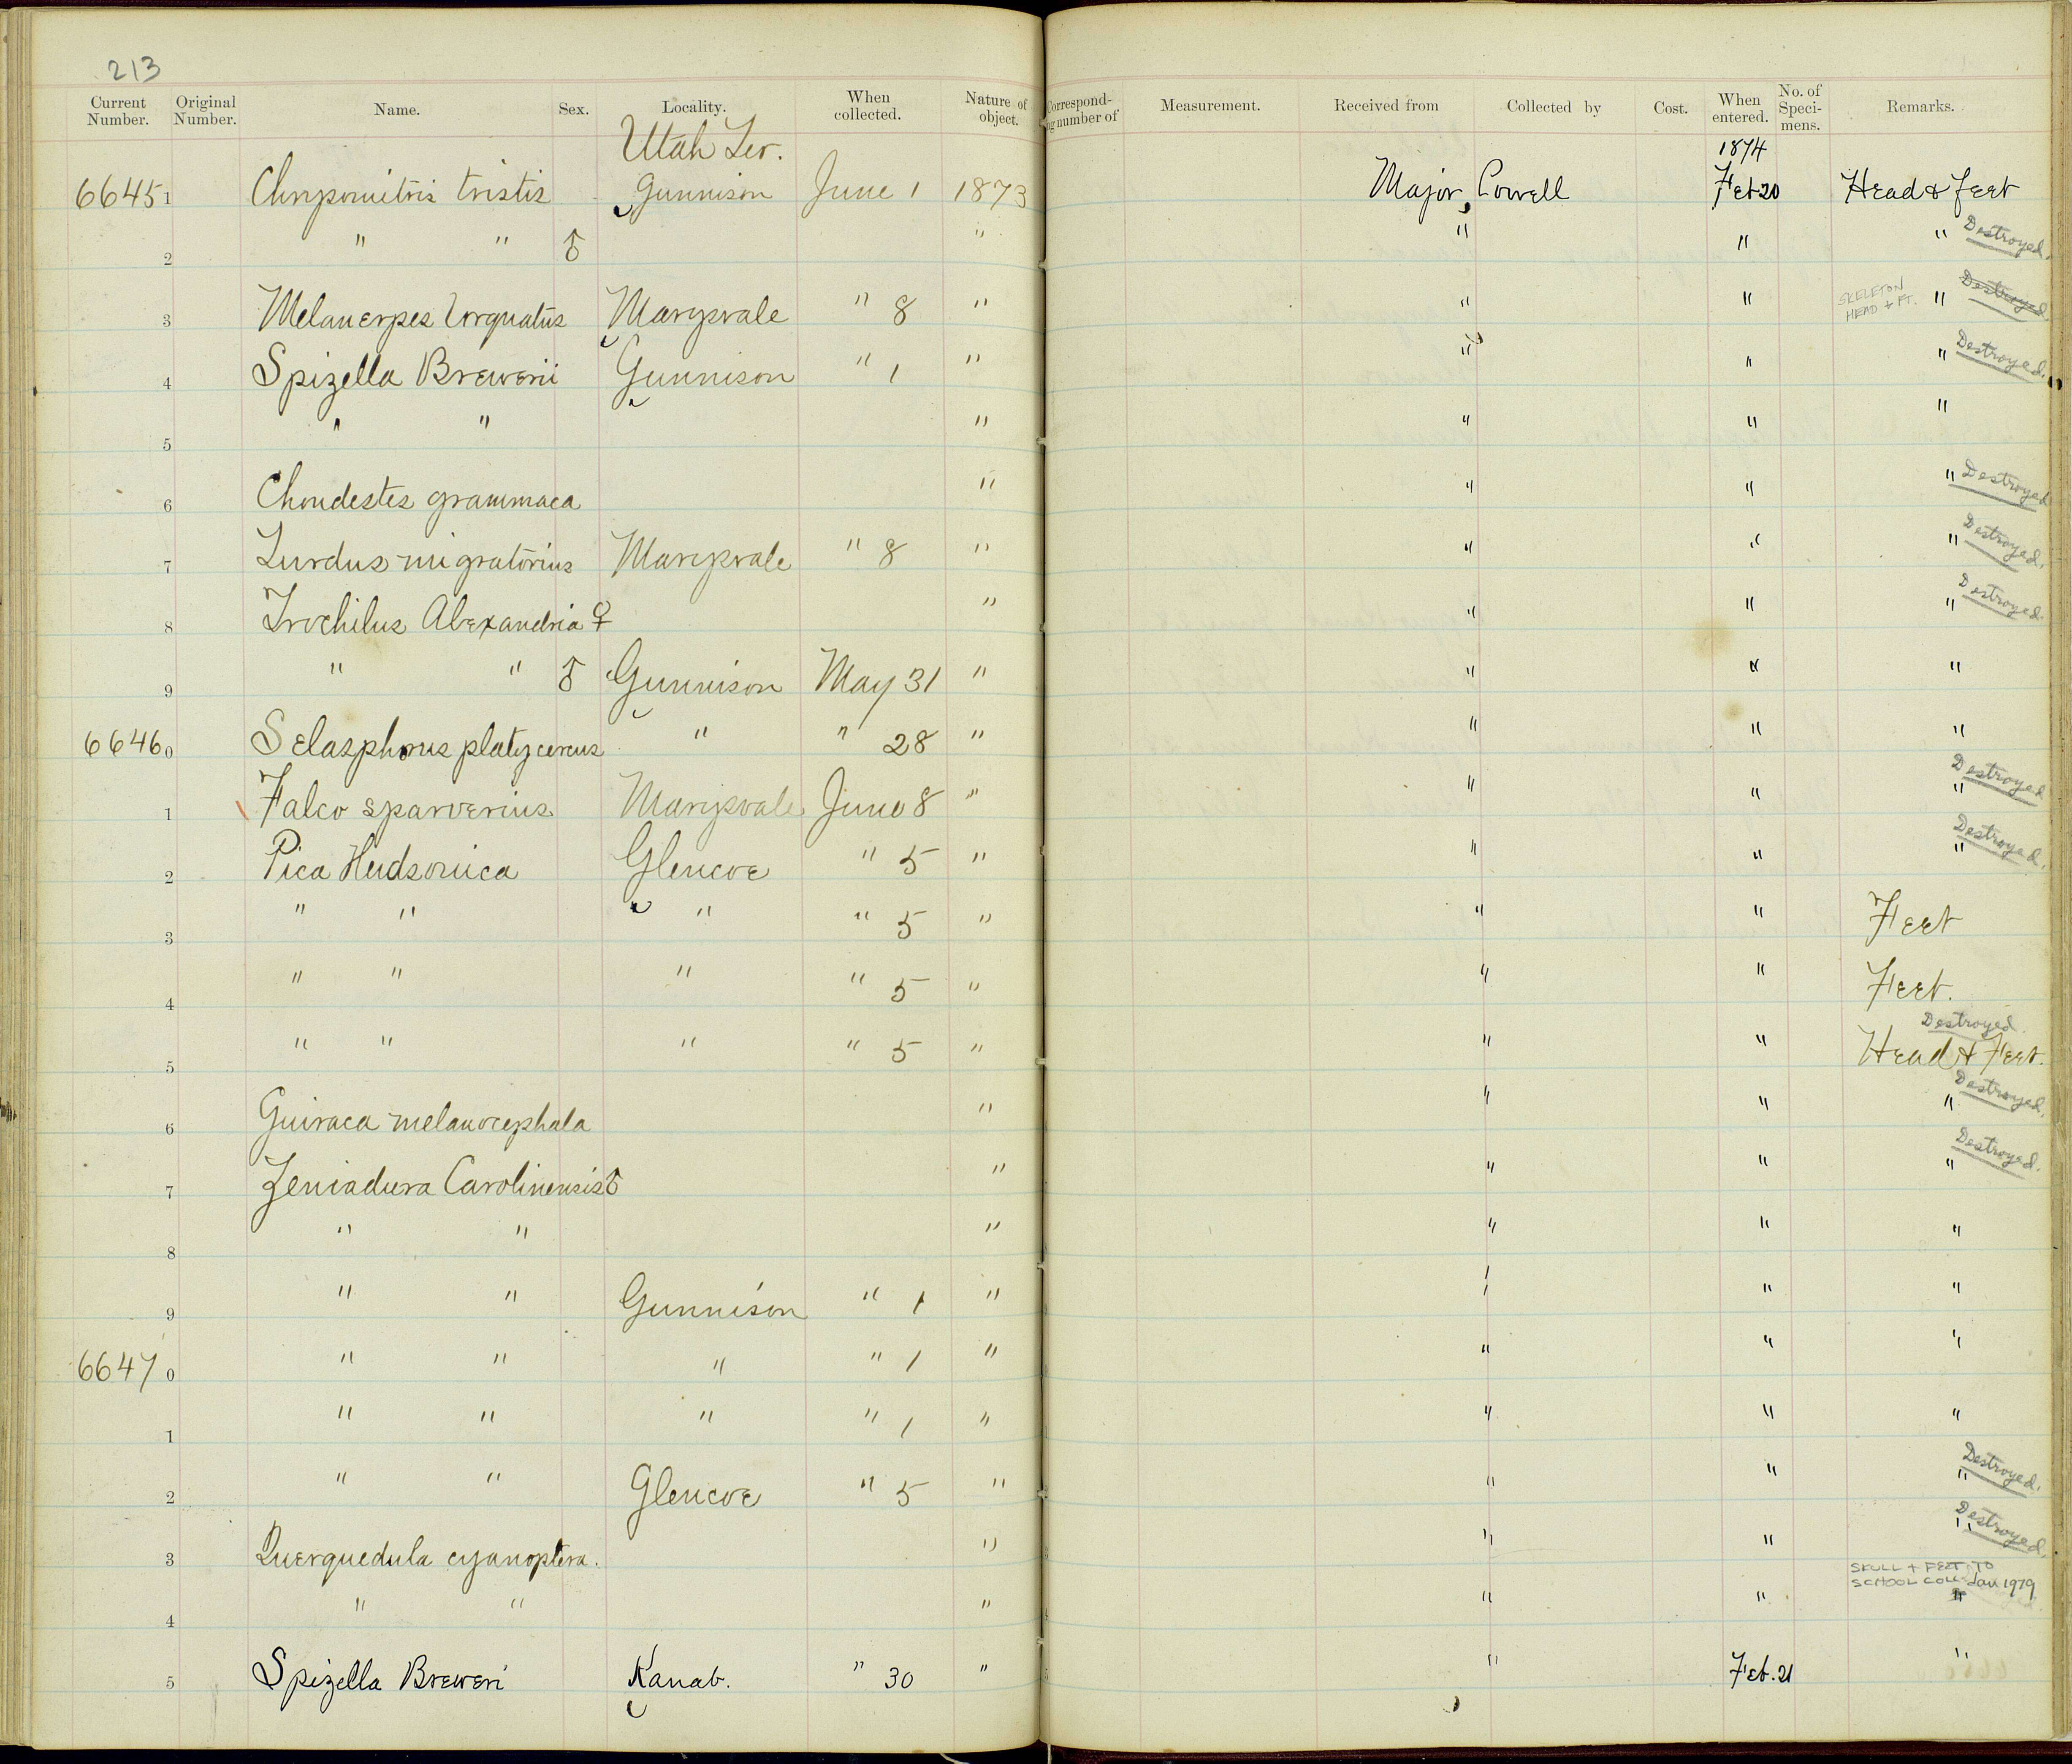 213
Current Number. Original Number. Name. Sex. Locality. When collected. Nature of object. Correspond- ng number of Measurement. Received from Collected by Cost. When entered. No. of Speci- mens. Remarks.
Utah Ter. 1874
6645 1 Chrysomitris tristis Gunnison June 1 1873 Major Powell Feb 20 Head & feet
2 " " ♂ " " " " Destroyed.
3 Melanerpes torquatus Marysvale " 8 " " " SKELETON HEAD + FT. " Destroyed.
4 Spizella Brewerii Gunnison " 1 " " " " Destroyed.
5 " " " " " "
6 Chondestes grammaca " " " " Destroyed
7 Turdus migratorius Marysvale " 8 " " " " Destroyed.
8 Trochilus Alexandria ♀ " " " " Destroyed.
9 " " ♂ Gunnison May 31 " " " "
6646 0 Selasphorus platycercus " " 28 " " " "
1 Falco sparverius Marysvale June 8 " " " " Destroyed
2 Pica Hudsonica Glencoe " 5 " " " " Destroyed.
3 " " " " 5 " " " Feet
4 " " " " 5 " " " Feet.
5 " " " " 5 " " " Destroyed. Head & Feet.
6 Guiraca melanocephala " " " " Destroyed.
7 Zeniadura Carolinensis ♂ " " " " Destroyed.
8 " " " " " "
9 " " Gunnison " 1 " " " "
6647 0 " " " " 1 " " " "
1 " " " " 1 " " " "
2 " " Glencoe " 5 " " " " Destroyed.
3 Querquedula cyanoptera. " " " " Destroyed.
4 " " " " " SKULL + FEET TO SCHOOL COLL. Jan 1979 "
5 Spizella Breweri Kanab. " 30 " " Feb. 21 "